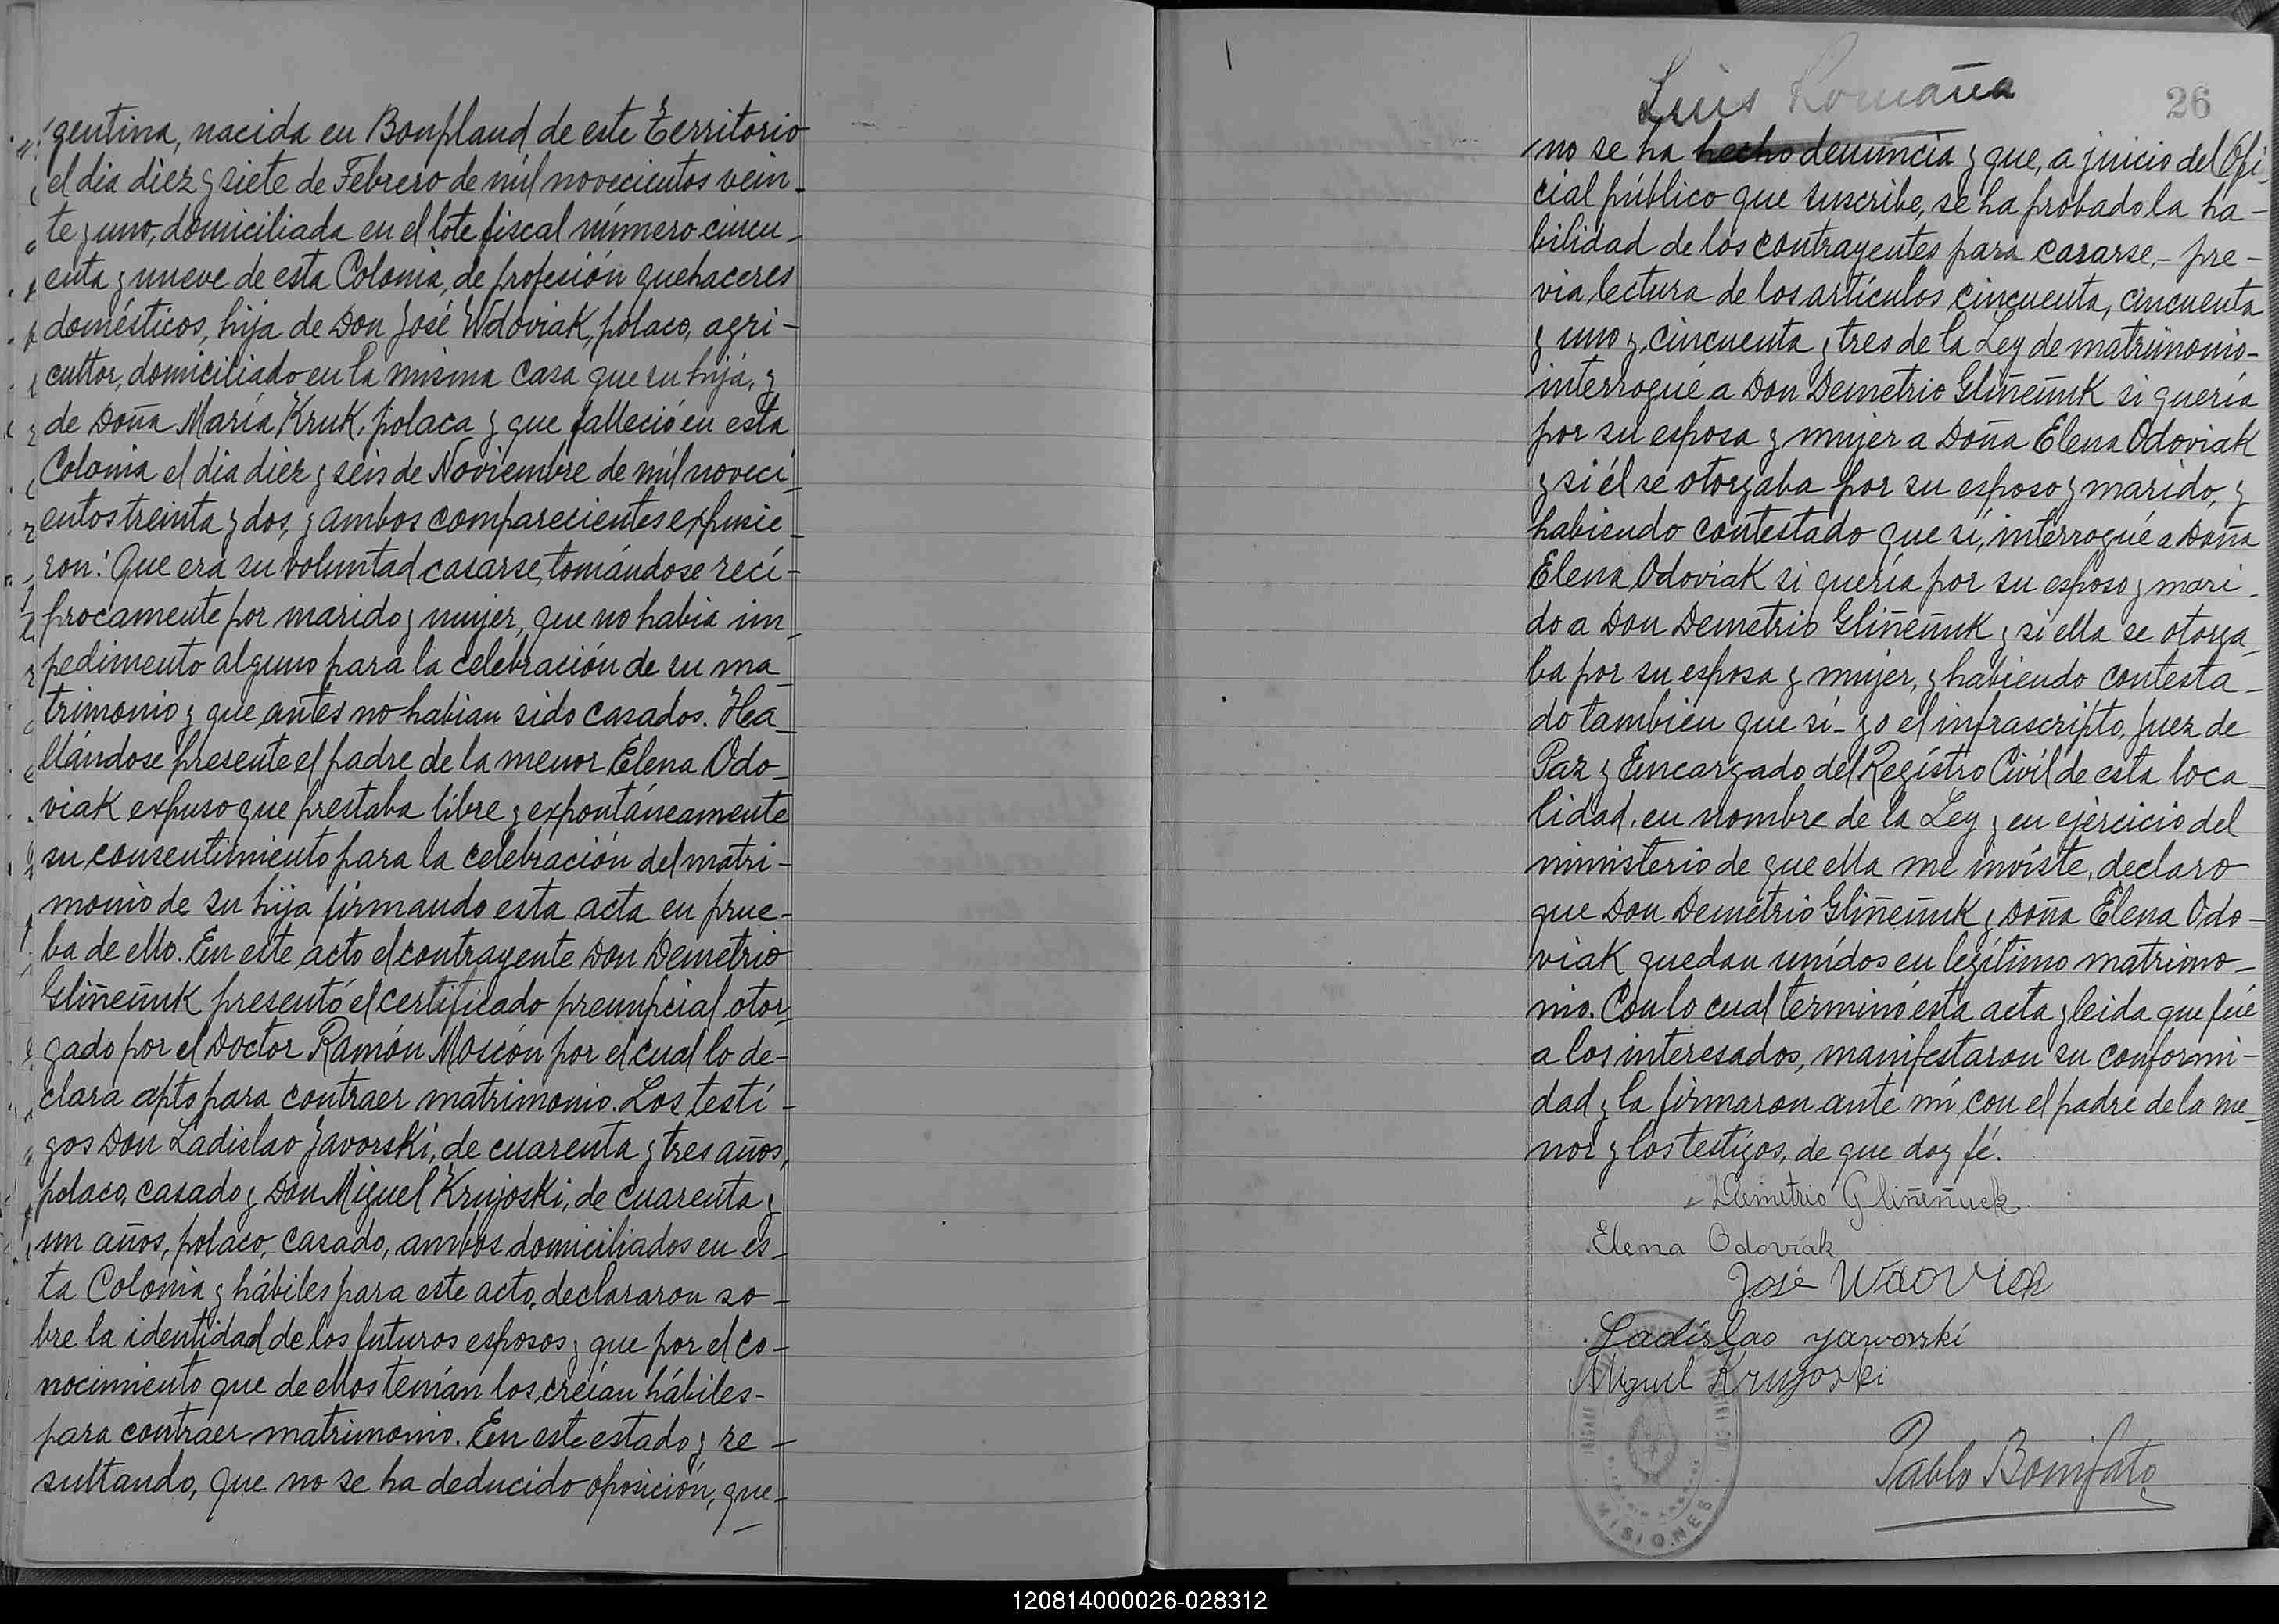 gentina, nacida en Bonpland de este Territorio
el dia diez y siete de Febrero de mil novecientos vein-
te y uno, domiciliada en el lote fiscal número cincu-
enta y nueve de esta Colonia, de profesión quehaceres
domésticos, hija de Don José Wdoviak, polaco, agri-
cultor, domiciliado en la misma casa que su hija, y
de Doña María Kruk, polaca y que falleció en esta
Colonia el dia diez y seis de Noviembre de mil noveci-
entos treinta y dos, y ambos comparecientes expusie-
ron: Que era su voluntad casarse, tomándose recí-
procamente por marido y mujer, que no habia im-
pedimento alguno para la celebración de su ma-
trimonio y que antes no habian sido casados. Ha-
llándose presente el padre de la menor Elena Odo-
viak expuso que prestaba libre y expontáneamente
su consentimiento para la celebración del matri-
monio de su hija firmando esta acta en prue-
ba de ello. En este acto el contrayente Don Demetrio
Gliñeñuk presentó el certificado prenupcial otor-
gado por el Doctor Ramón Moscón por el cual lo de-
clara apto para contraer matrimonio. Los testi-
gos Don Ladislao Javorski, de cuarenta y tres años,
polaco, casado y Don Miguel Krujoski, de cuarenta y
un años, polaco, casado, ambos domiciliados en es-
ta Colonia y hábiles para este acto, declararon so-
bre la identidad de los futuros esposos y que por el co-
nocimiento que de ellos tenían los creían hábiles-
para contraer matrimonio. En este estado y re-
sultando, que no se ha deducido oposición, que-
Luis Romaña
26
no se ha hecho denuncia y que, a juicio del Ofi-
cial público que suscribe, se ha probado la ha-
bilidad de los contrayentes para casarse,- pre-
via lectura de los artículos cincuenta, cincuenta
y uno y cincuenta y tres de la Ley de matrimonio-
interrogué a Don Demetrio Gliñeñuk si quería
por su esposa y mujer a Doña Elena Odoviak
y si él se otorgaba por su esposo y marido, y
habiendo contestado que sí, interrogué a Doña
Elena Odoviak si quería por su esposo y mari-
do a Don Demetrio Gliñeñuk y si ella se otorga-
ba por su esposa y mujer, y habiendo contesta-
do también que sí- yo el infrascripto, Juez de
Paz y Encargado del Registro Civil de esta loca-
lidad, en nombre de la Ley y en ejercicio del
ministerio de que ella me inviste, declaro
que Don Demetrio Gliñeñuk y Doña Elena Odo-
viak quedan unidos en legítimo matrimo-
nio. Con lo cual terminó esta acta y leida que fué
a los interesados, manifestaron su conformi-
dad y la firmaron ante mí, con el padre de la me-
nor y los testigos, de que doy fé.
Demetrio Gliñeñuck
Elena Odoviak
José Wdoviak
Ladislao Yaworski
Miguel Krujoski
Pablo Bonifato
MISIONES
120814000026-028312